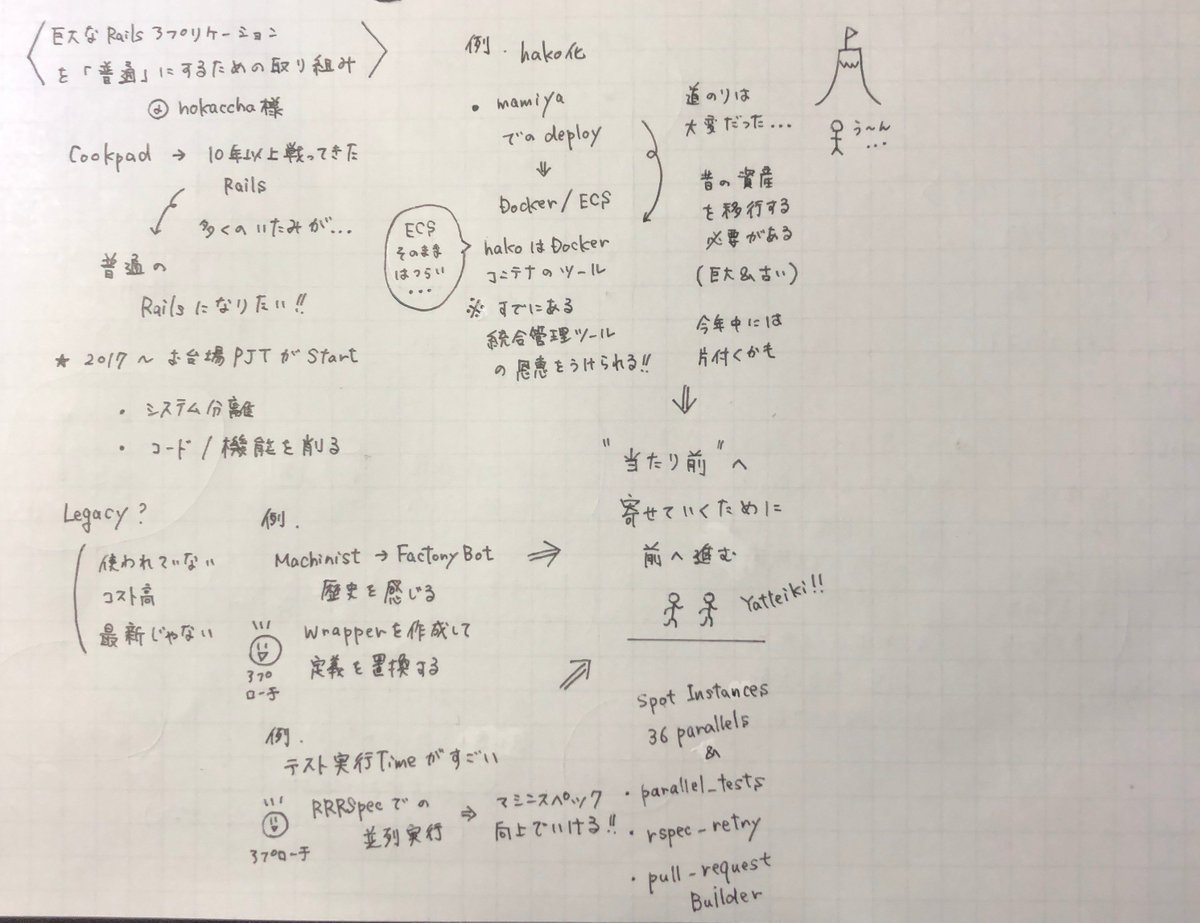 巨大なRailsアプリケーション
を「普通」にするための取り組み
@ hokaccha様
Cookpad → 10年以上戦ってきた
Rails
多くのいたみが...
普通の
Railsになりたい!!
★ 2017〜 お台場PJTがStart
・ システム分離
・ コード/機能を削る
Legacy?
使われていない
コスト高
最新じゃない
例.
Machinist → FactoryBot
歴史を感じる
アプ
ローチ
wrapperを作成して
定義を置換する
例.
テスト実行Timeがすごい
アプローチ
RRRSpecでの
並列実行
⇒ マシンスペック
向上でいける!!
例. hako化
• mamiya
でのdeploy
⇓
Docker/ECS
ECS
そのまま
はつらい
...
hakoはDocker
コンテナのツール
※ すでにある
統合管理ツール
の恩恵をうけられる!!
道のりは
大変だった...
う〜ん
...
昔の資産
を移行する
必要がある
(巨大&古い)
今年中には
片付くかも
⇓
"当たり前"へ
寄せていくために
前へ進む
Yatteiki!!
Spot Instances
36 parallels
&
・parallel_tests
・rspec-retry
・pull-request
Builder